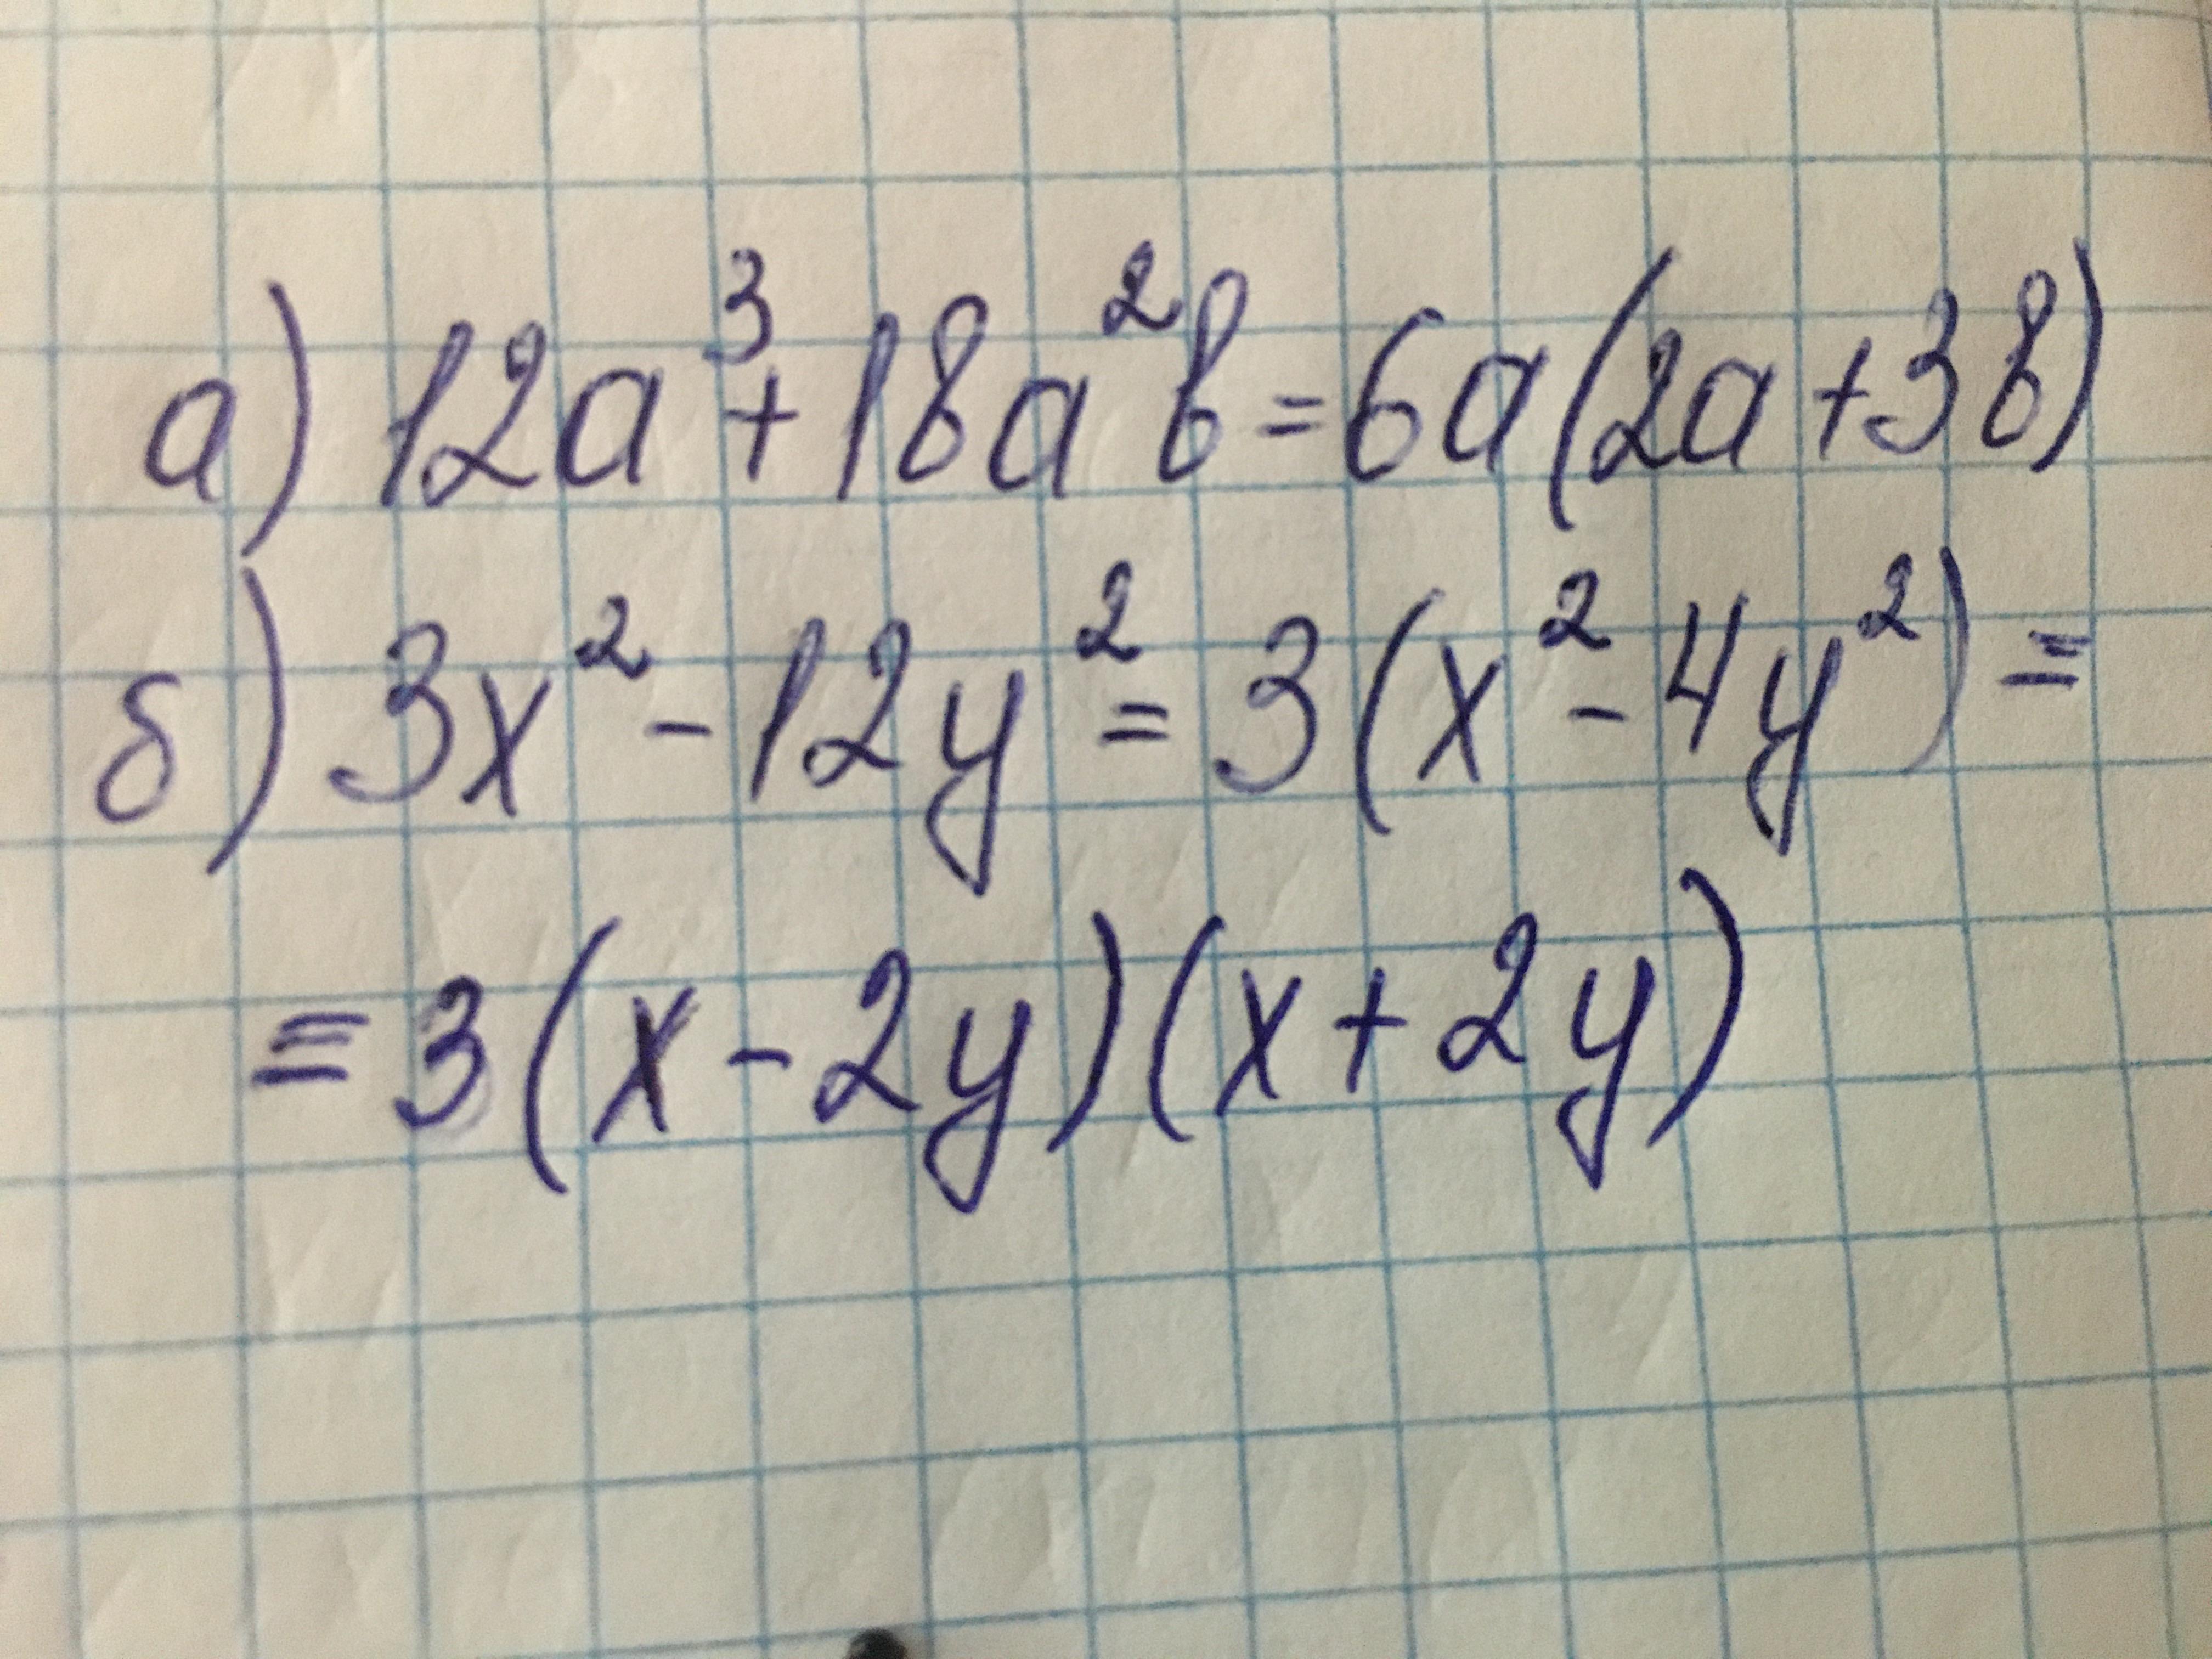 а) 12a³+18a²b=6a(2a+3b)
б) 3x²-12y²=3(x²-4y²)=
=3(x-2y)(x+2y)